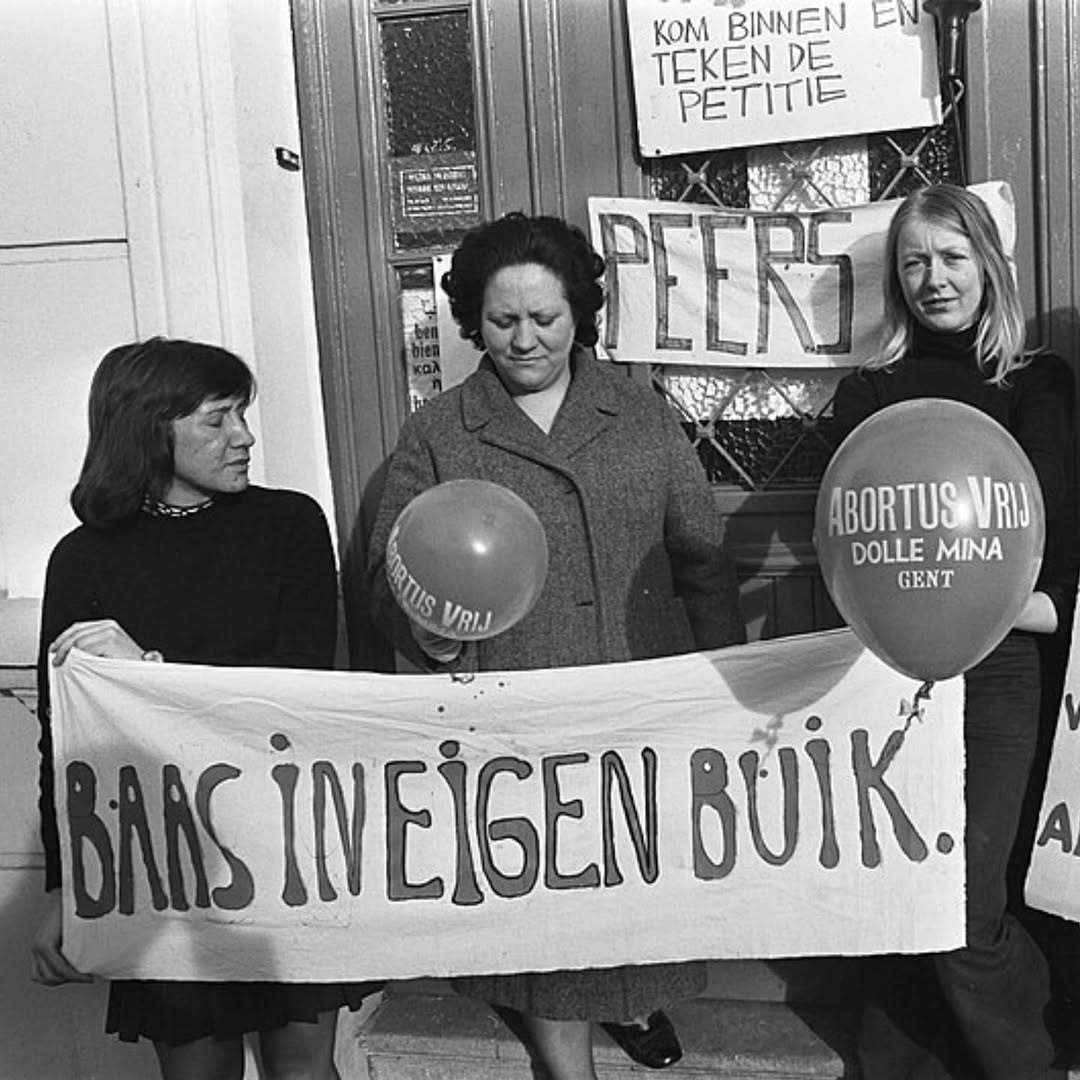 KOM BINNEN EN
TEKEN DE
PETITIE
PEERS
ben
bien
καλ
ABORTUS VRIJ
ABORTUS VRIJ
DOLLE MINA
GENT
BAAS IN EIGEN BUIK.